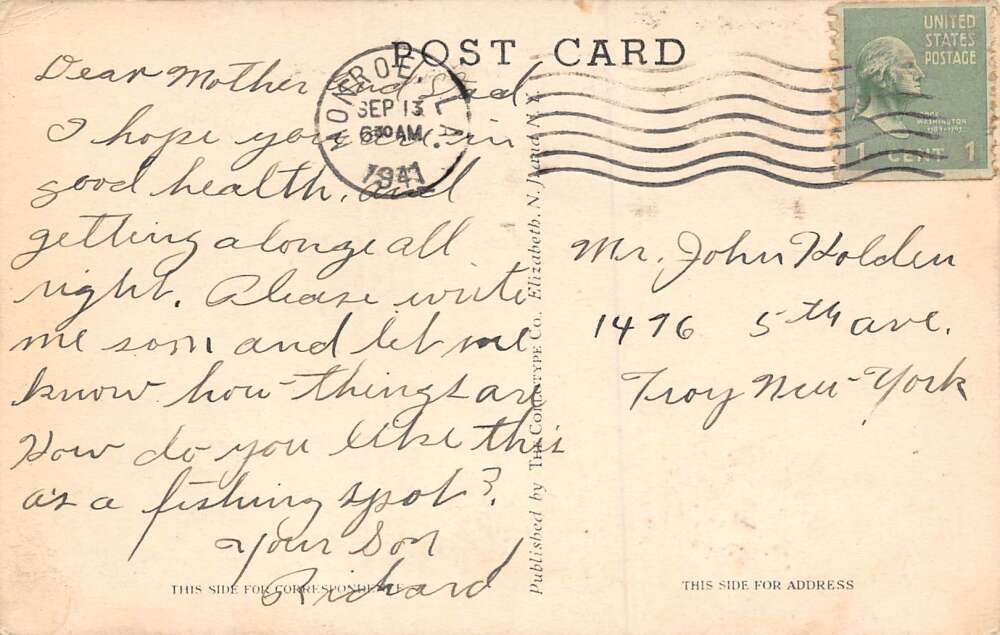 POST CARD
UNITED
STATES
POSTAGE
WASHINGTON
1 CENT 1
MONROE, LA.
SEP 13
630 AM
1941
Dear Mother and Dad
I hope you are in
good health, and
getting alonge all
right. Please write
me soon and let me
know how things are
How do you like this
as a fishing spot?
Your Son
Richard
Mr. John Holden
1476 5th ave.
Troy New York
Published by The Collotype Co. Elizabeth, N. J. and N. Y.
THIS SIDE FOR CORRESPONDENCE
THIS SIDE FOR ADDRESS